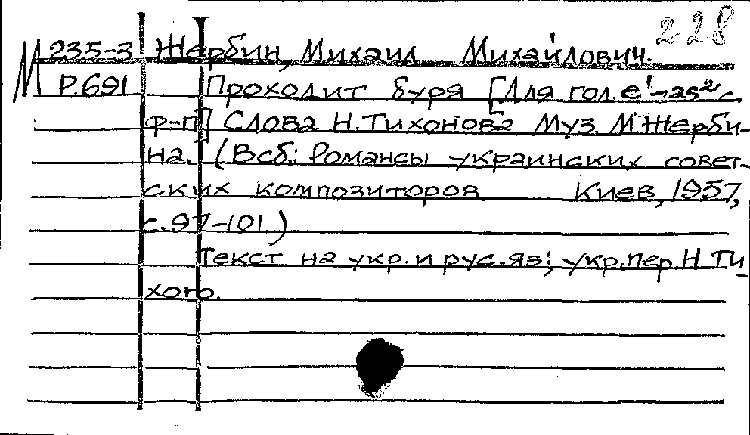 228
М 235-3 Жербин, Михаил Михайлович.
Р.691 Проходит буря [Для гол. e¹-as² с
ф-п] Слова Н.Тихонова Муз М.Жерби-
на. (В сб.: Романсы украинских совет-
ских композиторов Киев, 1957,
с.97-101.)
Текст на укр. и рус. яз; укр. пер. Н Ти
хого.